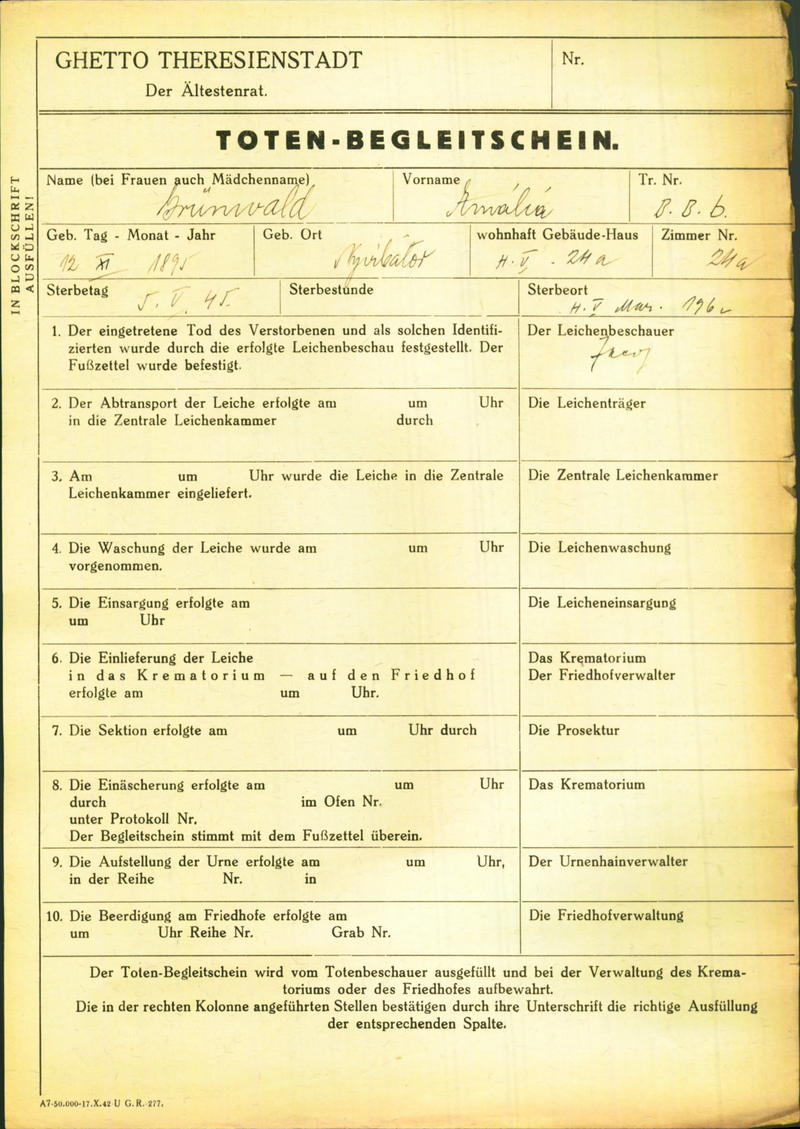 GHETTO THERESIENSTADT
Der Ältestenrat.
Nr.
TOTEN-BEGLEITSCHEIN.
IN BLOCKSCHRIFT
AUSFÜLLEN!
Name (bei Frauen auch Mädchenname)
Grünwald
Vorname
Amalia
Tr. Nr.
B. B. b.
Geb. Tag - Monat - Jahr
12 XI 1895
Geb. Ort
Nyirbátor
wohnhaft Gebäude-Haus
H. V - 24a
Zimmer Nr.
24a
Sterbetag
5. V. 45.
Sterbestunde
Sterbeort
H. V Mar. 196
1. Der eingetretene Tod des Verstorbenen und als solchen Identifi-
zierten wurde durch die erfolgte Leichenbeschau festgestellt. Der
Fußzettel wurde befestigt.
Der Leichenbeschauer
2. Der Abtransport der Leiche erfolgte am um Uhr
in die Zentrale Leichenkammer durch
Die Leichenträger
3. Am um Uhr wurde die Leiche in die Zentrale
Leichenkammer eingeliefert.
Die Zentrale Leichenkammer
4. Die Waschung der Leiche wurde am um Uhr
vorgenommen.
Die Leichenwaschung
5. Die Einsargung erfolgte am
um Uhr
Die Leicheneinsargung
6. Die Einlieferung der Leiche
in das Krematorium — auf den Friedhof
erfolgte am um Uhr.
Das Krematorium
Der Friedhofverwalter
7. Die Sektion erfolgte am um Uhr durch
Die Prosektur
8. Die Einäscherung erfolgte am um Uhr
durch im Ofen Nr.
unter Protokoll Nr.
Der Begleitschein stimmt mit dem Fußzettel überein.
Das Krematorium
9. Die Aufstellung der Urne erfolgte am um Uhr,
in der Reihe Nr. in
Der Urnenhainverwalter
10. Die Beerdigung am Friedhofe erfolgte am
um Uhr Reihe Nr. Grab Nr.
Die Friedhofverwaltung
Der Toten-Begleitschein wird vom Totenbeschauer ausgefüllt und bei der Verwaltung des Krema-
toriums oder des Friedhofes aufbewahrt.
Die in der rechten Kolonne angeführten Stellen bestätigen durch ihre Unterschrift die richtige Ausfüllung
der entsprechenden Spalte.
A7-50.000-17.X.42 U G.R. 277.